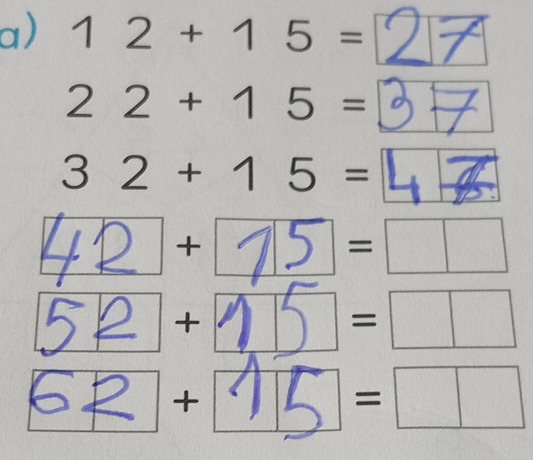 a) 12 + 15 = 27
22 + 15 = 37
32 + 15 = 47
42 + 15 =
52 + 15 =
62 + 15 =